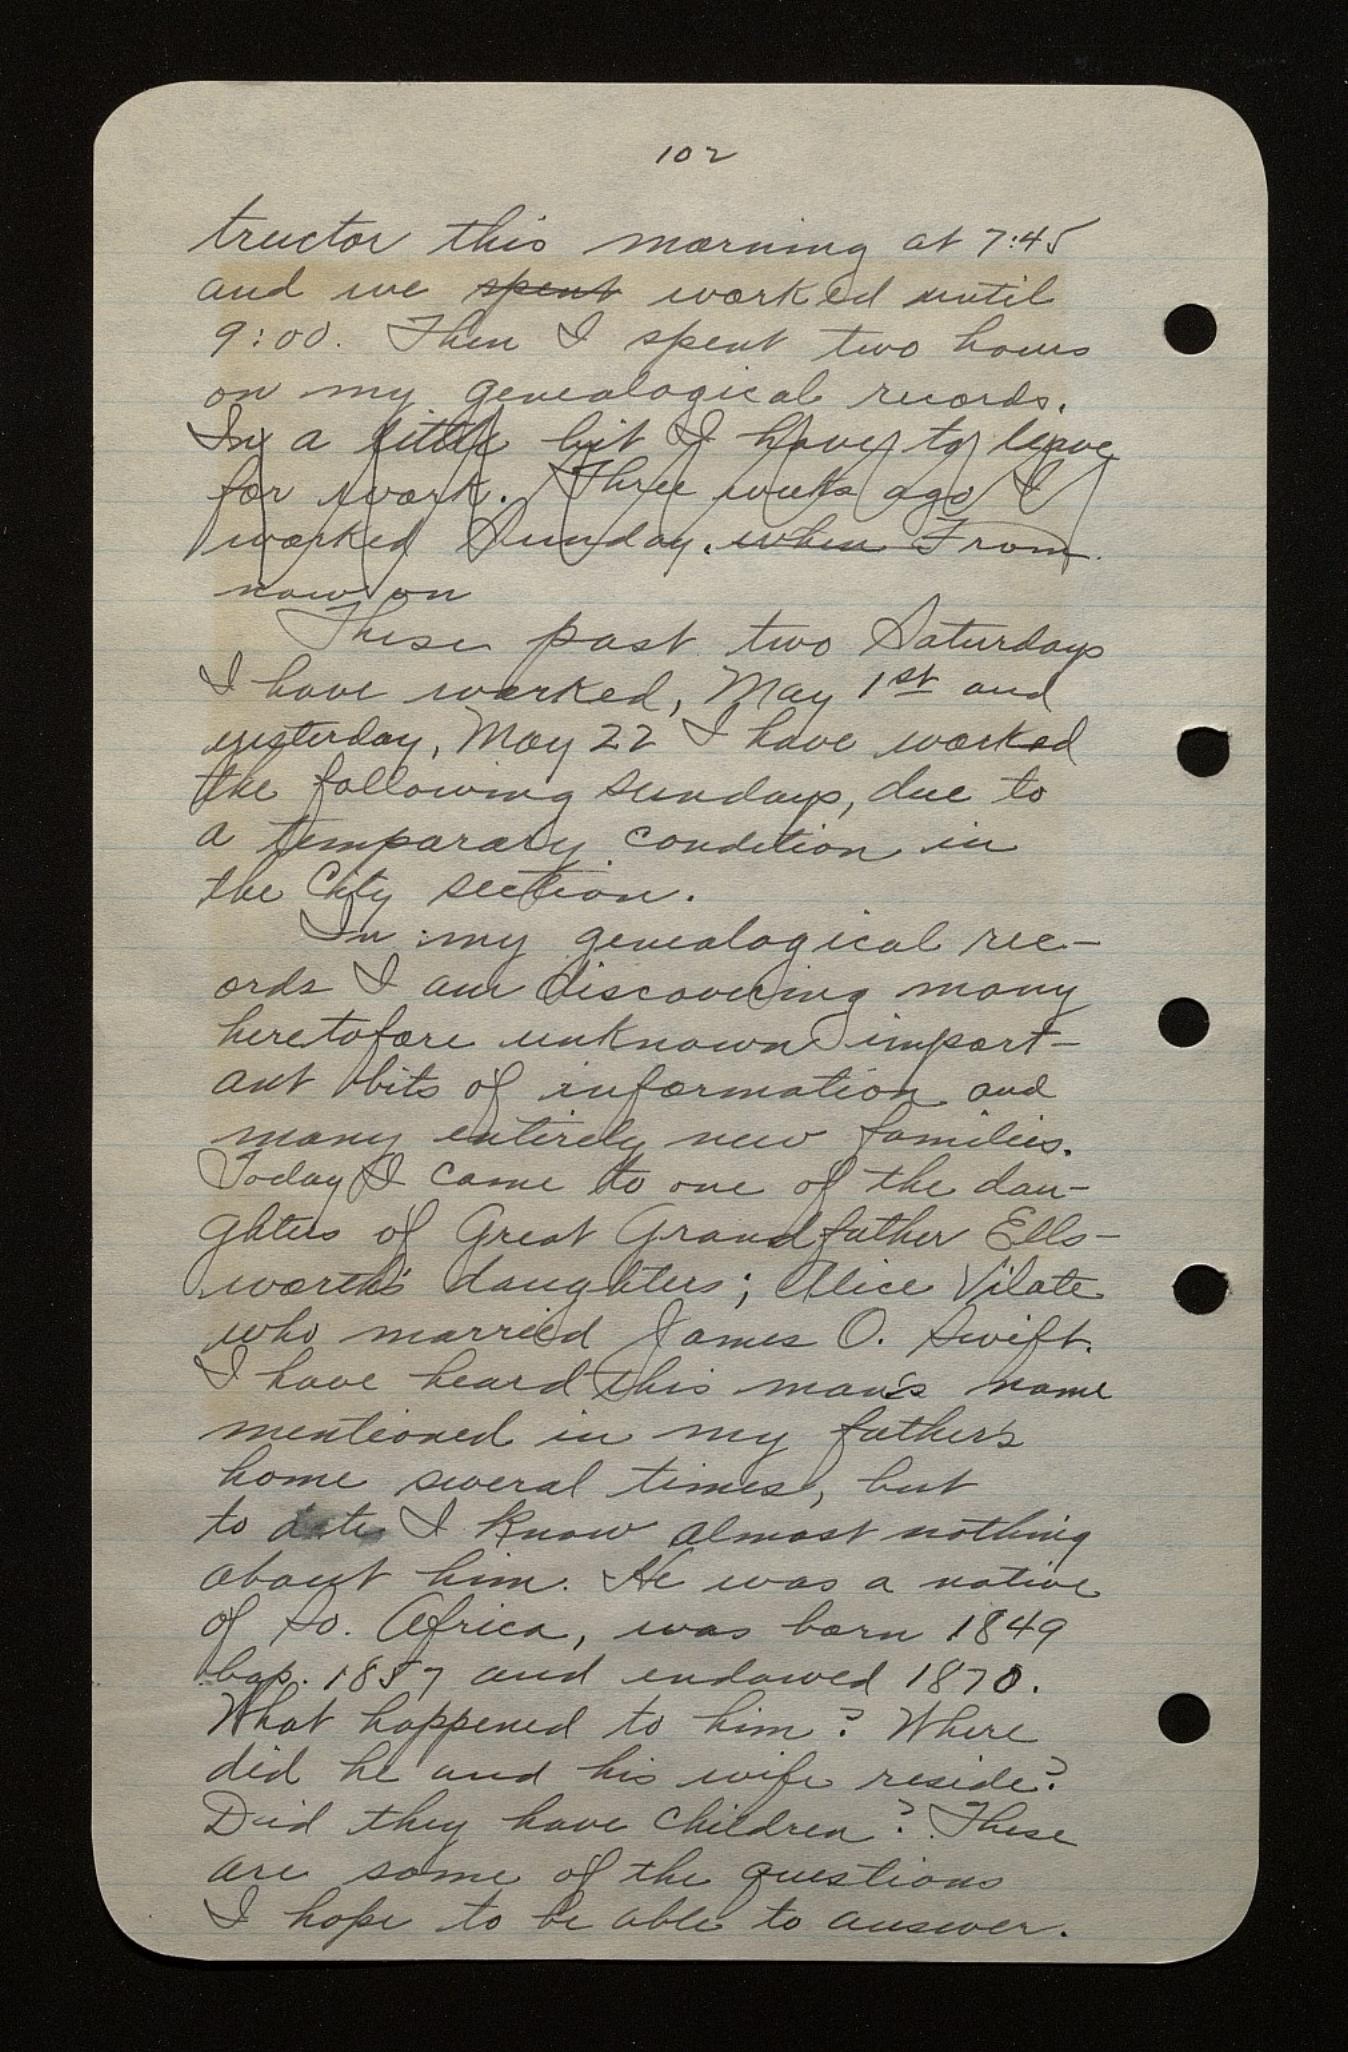 102
tructor this morning at 7:45
and we spent worked until
9:00. Then I spent two hours
on my genealogical records.
In a little bit I have to leave
for work. Three weeks ago I
worked Sunday. when From
now on
These past two Saturdays
I have worked, May 1st and
yesterday, May 22 I have worked
the following Sundays, due to
a temporary condition in
the City section.
In my genealogical rec-
ords I am discovering many
heretofore unknown import-
ant bits of information and
many entirely new families.
Today I came to one of the dau-
ghters of Great Grandfather Ells-
worth's daughters; Alice Vilate
who married James O. Swift.
I have heard this man's name
mentioned in my father's
home several times, but
to date I know almost nothing
about him. He was a native
of So. Africa, was born 1849
bap. 1857 and endowed 1870.
What happened to him? Where
did he and his wife reside?
Did they have children? These
are some of the questions
I hope to be able to answer.